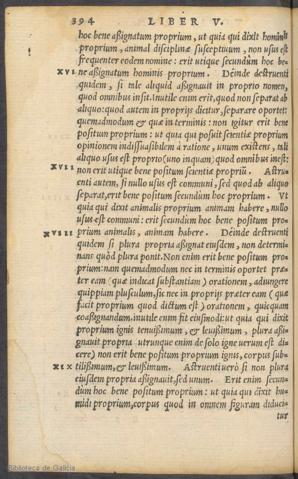 394 LIBER V.
hoc bene aßignatum proprium, ut quia qui dixit hominis
proprium, animal disciplinæ susceptiuum, non usus est
frequenter eodem nomine: erit utique secundùm hoc be-
XVI. ne aßignatum hominis proprium. Deinde destruenti
quidem, si tale aliquid aßignauit in proprio nomen,
quod omnibus insit. inutile enim erit, quod non separat ab
aliquo: quod autem in proprijs dicitur, separare oportet:
quemadmodum & quæ in terminis: non igitur erit bene
positum proprium: ut quia qui posuit scientiæ proprium
opinionem indissuasibilem à ratione, unum existens, tali
aliquo usus est proprio (uno inquam) quod omnibus inest:
XVII non erit utique bene positum scientiæ propriũ. Astru-
enti autem, si nullo usus est communi, sed quod ab aliquo
separat, erit bene positum secundùm hoc proprium. Vt
quia qui dixit animalis proprium animam habere, nullo
usus est communi: erit secundùm hoc bene positum pro-
XVIII prium animalis, animam habere. Deinde destruenti
quidem si plura propria aßignat eiusdem, non determi-
nans quòd plura ponit. Non enim erit bene positum pro-
prium: nam quemadmodum nec in terminis oportet præ-
ter eam (quæ indicat substantiam) orationem, adiungere
quippiam plusculum, sic nec in proprijs præter eam (quæ
facit proprium quod dictum est) orationem, quicquam
coaßignandum. inutile enim fit eiusmodi: ut quia qui dixit
proprium ignis tenuißimum, & leuißimum, plura aßi-
gnauit propria (utrunque enim de solo igne uerum est di
cere) non erit bene positum proprium ignis, corpus sub-
XIX tilißimum, & leuißimum. Astruenti uerò si non plura
eiusdem propria aßignauit, sed unum. Erit enim secun-
dùm hoc bene positum proprium: ut quia qui dixit hu-
midi proprium, corpus quod in omnem figuram deduci-
tur
Biblioteca de Galicia